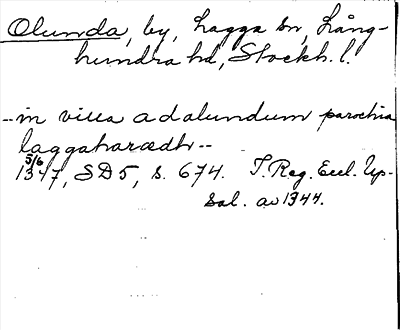 Olunda, by, Lagga sn, Lång-
hundra hd, Stockh. l.
--in villa adalundum parochia
laggaharædh--
5/6
1347, SD5, s. 674. T. Reg. Eccl. Up-
sal. av 1344.